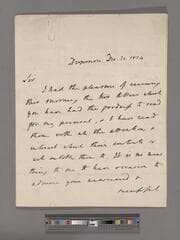 Sir
I had the pleasure of receiving
this morning the two letters which
you have had the goodness to send
for my perusal, & I have read
them with all the attention &
interest which their contents &
which entitle them to. It is no new
thing to me to have occasion to
admire your reasoned &